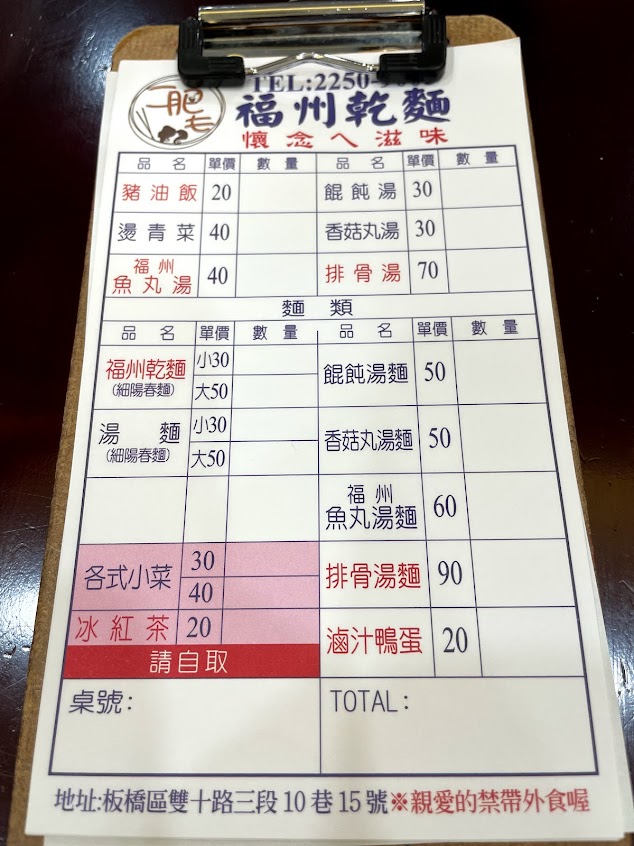 肥毛
TEL:2250-
福州乾麵
懷念ㄟ滋味
品名 單價 數量 品名 單價 數量
豬油飯 20 餛飩湯 30
燙青菜 40 香菇丸湯 30
福州魚丸湯 40 排骨湯 70
麵類
品名 單價 數量 品名 單價 數量
福州乾麵 (細陽春麵) 小30 大50 餛飩湯麵 50
湯麵 (細陽春麵) 小30 大50 香菇丸湯麵 50
福州魚丸湯麵 60
各式小菜 30 40 排骨湯麵 90
冰紅茶 20 滷汁鴨蛋 20
請自取
桌號: TOTAL:
地址:板橋區雙十路三段10巷15號※親愛的禁帶外食喔